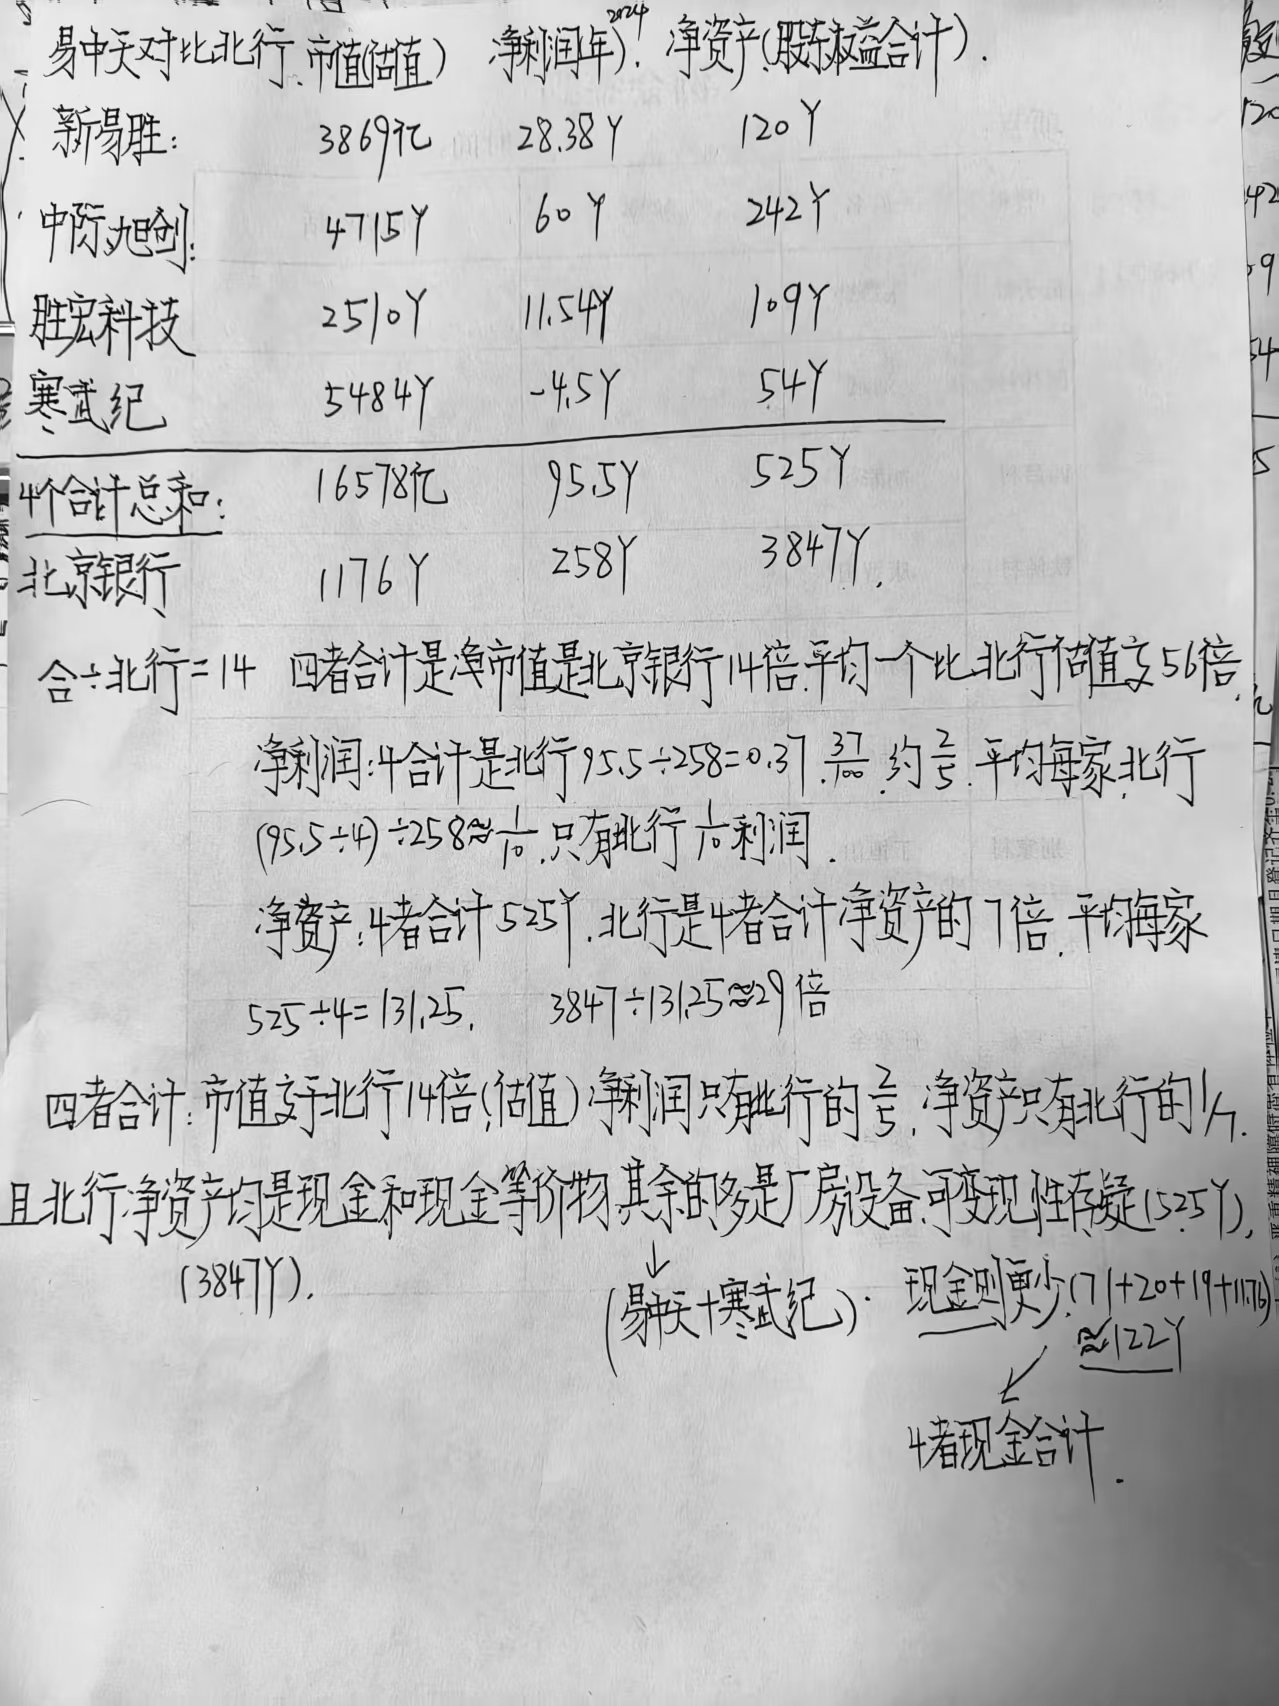 易中天对比北行. 市值(估值) 净利润(年)2024. 净资产(股东权益合计).
新易胜: 3869亿 28.38Y 120Y
中际旭创: 4715Y 60Y 242Y
胜宏科技 2510Y 11.54Y 109Y
寒武纪 5484Y -4.5Y 54Y
4个合计总和: 16578亿 95.5Y 525Y
北京银行 1176Y 258Y 3847Y.
合÷北行=14 四者合计是净市值是北京银行14倍.平均一个比北行估值高56倍.
净利润:4合计是北行95.5÷258=0.37.37/100.约2/5.平均每家.北行
(95.5÷4)÷258≈1/10.只有北行1/10利润.
净资产:4者合计525Y.北行是4者合计净资产的7倍.平均每家
525÷4=131.25. 3847÷131.25≈29倍
四者合计:市值高于北行14倍(估值)净利润只有北行的2/5.净资产只有北行的1/7.
且北行净资产均是现金和现金等价物,其余的多是厂房设备.可变现性存疑(525Y).
(3847Y). ↓ 现金则更少(71+20+19+11.76)
(易中天+寒武纪). ≈122Y
4者现金合计.